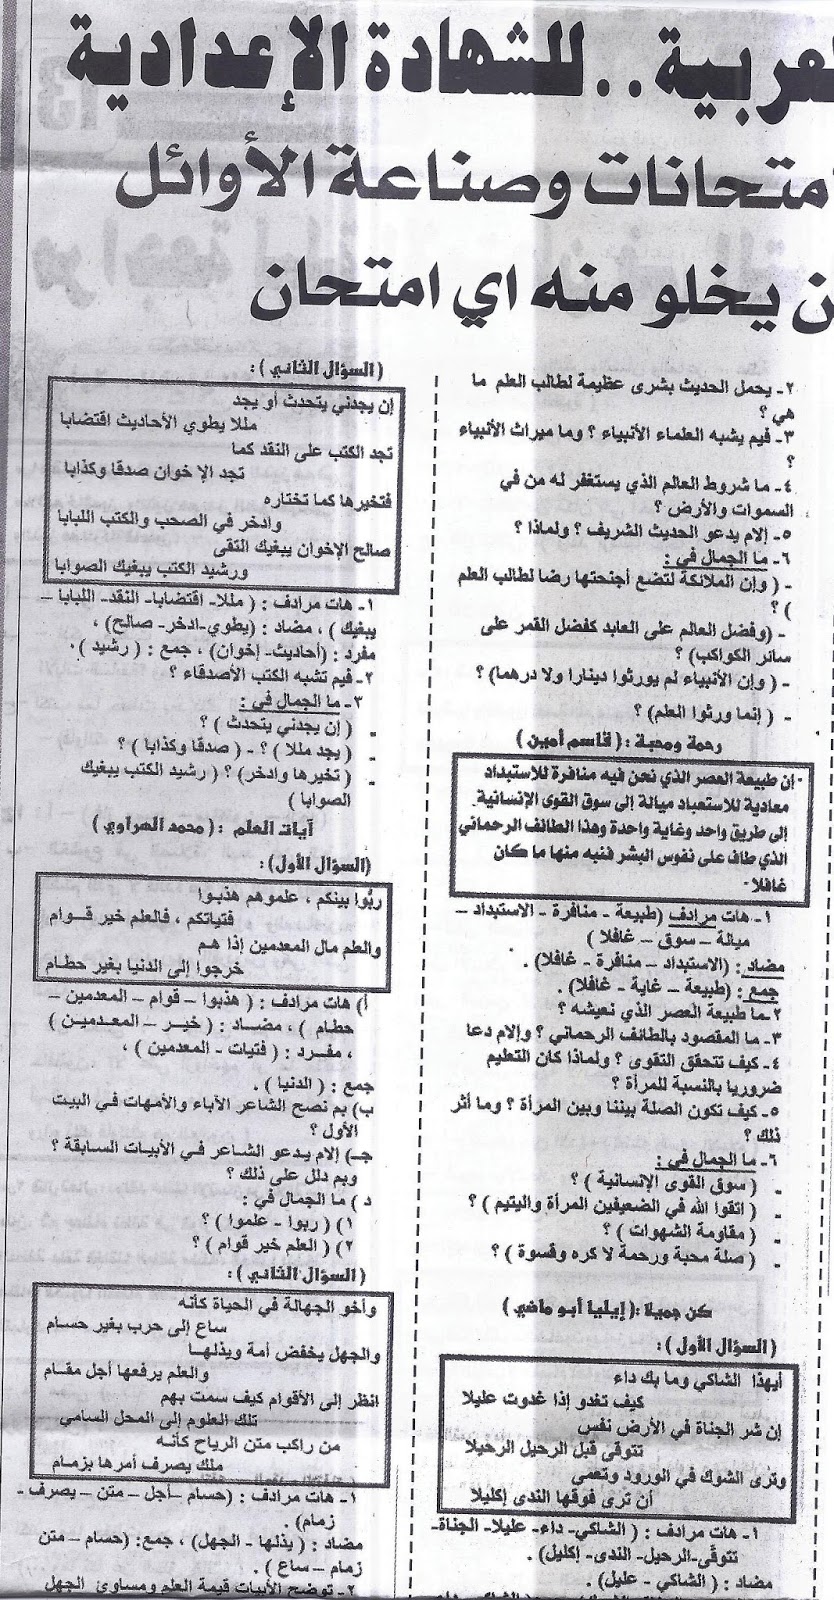 لعربية..للشهادة الإعدادية
امتحانات وصناعة الأوائل
ن يخلو منه اي امتحان
٢- يحمل الحديث بشرى عظيمة لطالب العلم ما
هي ؟
٣- فيم يشبه العلماء الأنبياء ؟ وما ميراث الأنبياء
؟
٤- ما شروط العالم الذي يستغفر له من في
السموات والأرض ؟
٥- إلام يدعو الحديث الشريف ؟ ولماذا ؟
٦- ما الجمال في :
- ( وإن الملائكة لتضع أجنحتها رضا لطالب العلم
) ؟
- (وفضل العالم على العابد كفضل القمر على
سائر الكواكب) ؟
- ( وإن الأنبياء لم يورثوا دينارا ولا درهما) ؟
- ( إنما ورثوا العلم) ؟
رحمة ومحبة : ( قاسم أمين )
إن طبيعة العصر الذي نحن فيه منافرة للاستبداد
معادية للاستعباد ميالة إلى سوق القوى الإنسانية
إلى طريق واحد وغاية واحدة وهذا الطائف الرحماني
الذي طاف على نفوس البشر فنبه منها ما كان
غافلا
١- هات مرادف (طبيعة - منافرة - الاستبداد –
ميالة – سوق – غافلا )
مضاد : (الاستبداد – منافرة - غافلا) .
جمع : (طبيعة – غاية - غافلا) .
٢-ما طبيعة العصر الذي نعيشه ؟
٣- ما المقصود بالطائف الرحماني ؟ وإلام دعا
٤- كيف تتحقق التقوى ؟ ولماذا كان التعليم
ضروريا بالنسبة للمرأة ؟
٥- كيف تكون الصلة بيننا وبين المرأة ؟ وما أثر
ذلك ؟
٦- ما الجمال في :
- ( سوق القوى الإنسانية ) ؟
- ( اتقوا الله في الضعيفين المرأة واليتيم ) ؟
- ( مقاومة الشهوات ) ؟
- ( صلة محبة ورحمة لا كره وقسوة ) ؟
كن جميلا :( إيليا أبو ماضي )
( السؤال الأول) :
أيهذا الشاكي وما بك داء
كيف تغدو إذا غدوت عليلا
إن شر الجناة في الأرض نفس
تتوقى قبل الرحيل الرحيلا
وترى الشوك في الورود وتعمى
أن ترى فوقها الندى إكليلا
١- هات مرادف : ( الشاكي- داء- عليلا- الجناة-
تتوقّى-الرحيل- الندى- إكليل) .
مضاد : ( الشاكي - عليل) .
( السؤال الثاني ) :
إن يجدني يتحدث أو يجد
مللا يطوي الأحاديث اقتضابا
تجد الكتب على النقد كما
تجد الإخوان صدقا وكذابا
فتخيرها كما تختاره
وادخر في الصحب والكتب اللبابا
صالح الإخوان يبغيك التقى
ورشيد الكتب يبغيك الصوابا
١- هات مرادف : ( مللا- اقتضابا- النقد- اللبابا –
يبغيك ) ، مضاد : (يطوي-ادخر- صالح) ،
مفرد : (أحاديث- إخوان) ، جمع : ( رشيد ) .
٢- فيم تشبه الكتب الأصدقاء ؟
٣- ما الجمال في :
- ( إن يجدني يتحدث ) ؟
- ( يجد مللا ) ؟ - ( صدقا وكذابا ) ؟
- ( تخيرها وادخر) ؟ ( رشيد الكتب يبغيك
الصوابا )
آيات العلم : ( محمد الهراوي )
(السؤال الأول) :
ربُّوا بينكم ، علموهم هذبوا
فتياتكم ، فالعلم خير قــوام
والعلم مال المعدمين إذا هـم
خرجوا إلى الدنيا بغير حطـام
أ) هات مرادف : ( هذبوا – قوام – المعدمين –
حطام ) ، مضـاد : ( خيـر – المعـدميـن )
، مفـرد : ( فتيات - المعدمين ) ،
جمع : ( الدنيا ) .
ب) بم نصح الشاعر الآباء والأمهات في البيت
الأول ؟
جـ) إلام يدعو الشاعر في الأبيات السابقة ؟
وبم دلل على ذلك ؟
د ) ما الجمال في :
١) ( ربوا - علموا ) ؟
٢) ( العلم خير قوام ) ؟
( السؤال الثاني ) :
وأخو الجهالة في الحياة كأنه
ساع إلى حرب بغير حسـام
والجهل يخفض أمة ويذلهـا
والعلم يرفعها أجل مقـام
انظر إلى الأقوام كيف سمت بهم
تلك العلوم إلى المحل السامي
من راكب متن الرياح كأنـه
ملك يصرف أمرها بزمام
١- هات مرادف : (حسام –أجل – متن – يصرف -
زمام) .
مضاد : ( يذلها - الجهل) ، جمع: (حسام – متن
زمام – ساع ) .
٢- توضح الأبيات قيمة العلم ومساوئ الجهل